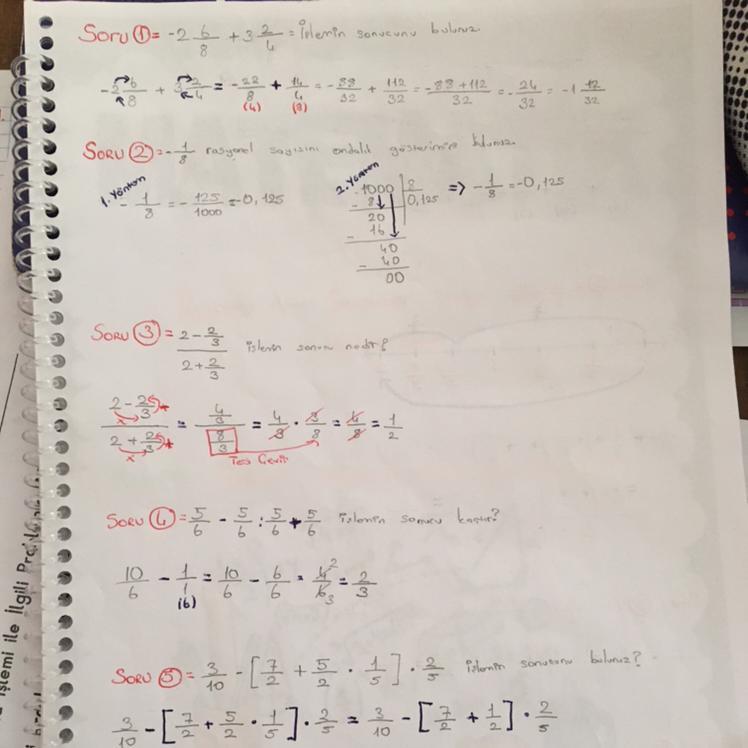 SORU 1 = -2 6/8 + 3 2/4 = işlemin sonucunu bulunuz.
-2 6/8 + 3 2/4 = -22/8 + 14/4 = -88/32 + 112/32 = -88+112/32 = -24/32 = -1 12/32
(4) (8)
SORU 2 = -1/8 rasyonel sayısını ondalık gösterimini bulunuz.
1. Yöntem
-1/8 = -125/1000 = -0,125
2. Yöntem
1000 | 8
0,125
=> -1/8 = -0,125
- 8
20
- 16
40
- 40
00
SORU 3 = 2 - 2/3 / 2 + 2/3 işlemin sonucu nedir?
2 - 2/3 / 2 + 2/3 = 4/3 / 8/3 = 4/3 · 3/8 = 4/8 = 1/2
Ters Çevir
SORU 4 = 5/6 - 5/6 : 5/6 + 5/6 işlemin sonucu kaçtır?
10/6 - 1/1 = 10/6 - 6/6 = 4/6 = 2/3
(6) 2 3
SORU 5 = 3/10 - [7/2 + 5/2 · 1/5] · 2/5 işlemin sonucunu bulunuz?
3/10 - [7/2 + 5/2 · 1/5] · 2/5 = 3/10 - [7/2 + 1/2] · 2/5
işlemi ile İlgili